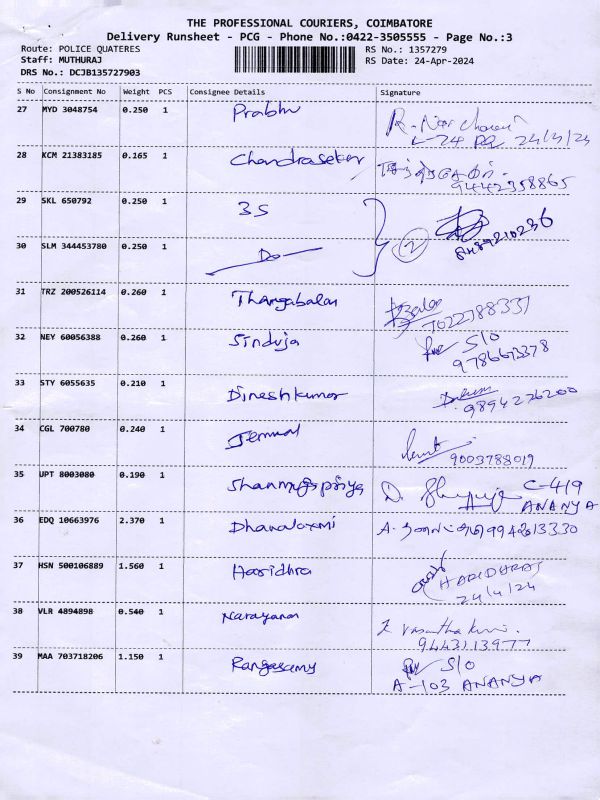 THE PROFESSIONAL COURIERS, COIMBATORE
Delivery Runsheet - PCG - Phone No.:0422-3505555 - Page No.:3
Route: POLICE QUATERES RS No.: 1357279
Staff: MUTHURAJ RS Date: 24-Apr-2024
DRS No.: DCJB135727903
S No Consignment No Weight PCS Consignee Details Signature
27 MYD 3048754 0.250 1 Prabhu
24/4/24
28 KCM 21383185 0.165 1 Chandrasekar
9442358865
29 SKL 650792 0.250 1 3S
2
30 SLM 344453780 0.250 1 Do
31 TRZ 200526114 0.260 1 Thangabalan
7022788337
32 NEY 60056388 0.260 1 Sinduja S/O
9786673378
33 STY 6055635 0.210 1 Dineshkumar
9894276200
34 CGL 700780 0.240 1
9003788019
35 UPT 8003080 0.190 1 Shanmugapriya C-419
ANANYA
36 EDQ 10663976 2.370 1 Dhanalaxmi
37 HSN 500106889 1.560 1 Haridhra HARIDHRAS
24/4/24
38 VLR 4894898 0.540 1 Narayanan
9443113977
39 MAA 703718206 1.150 1 Rangasamy S/O
A-103 ANANYA